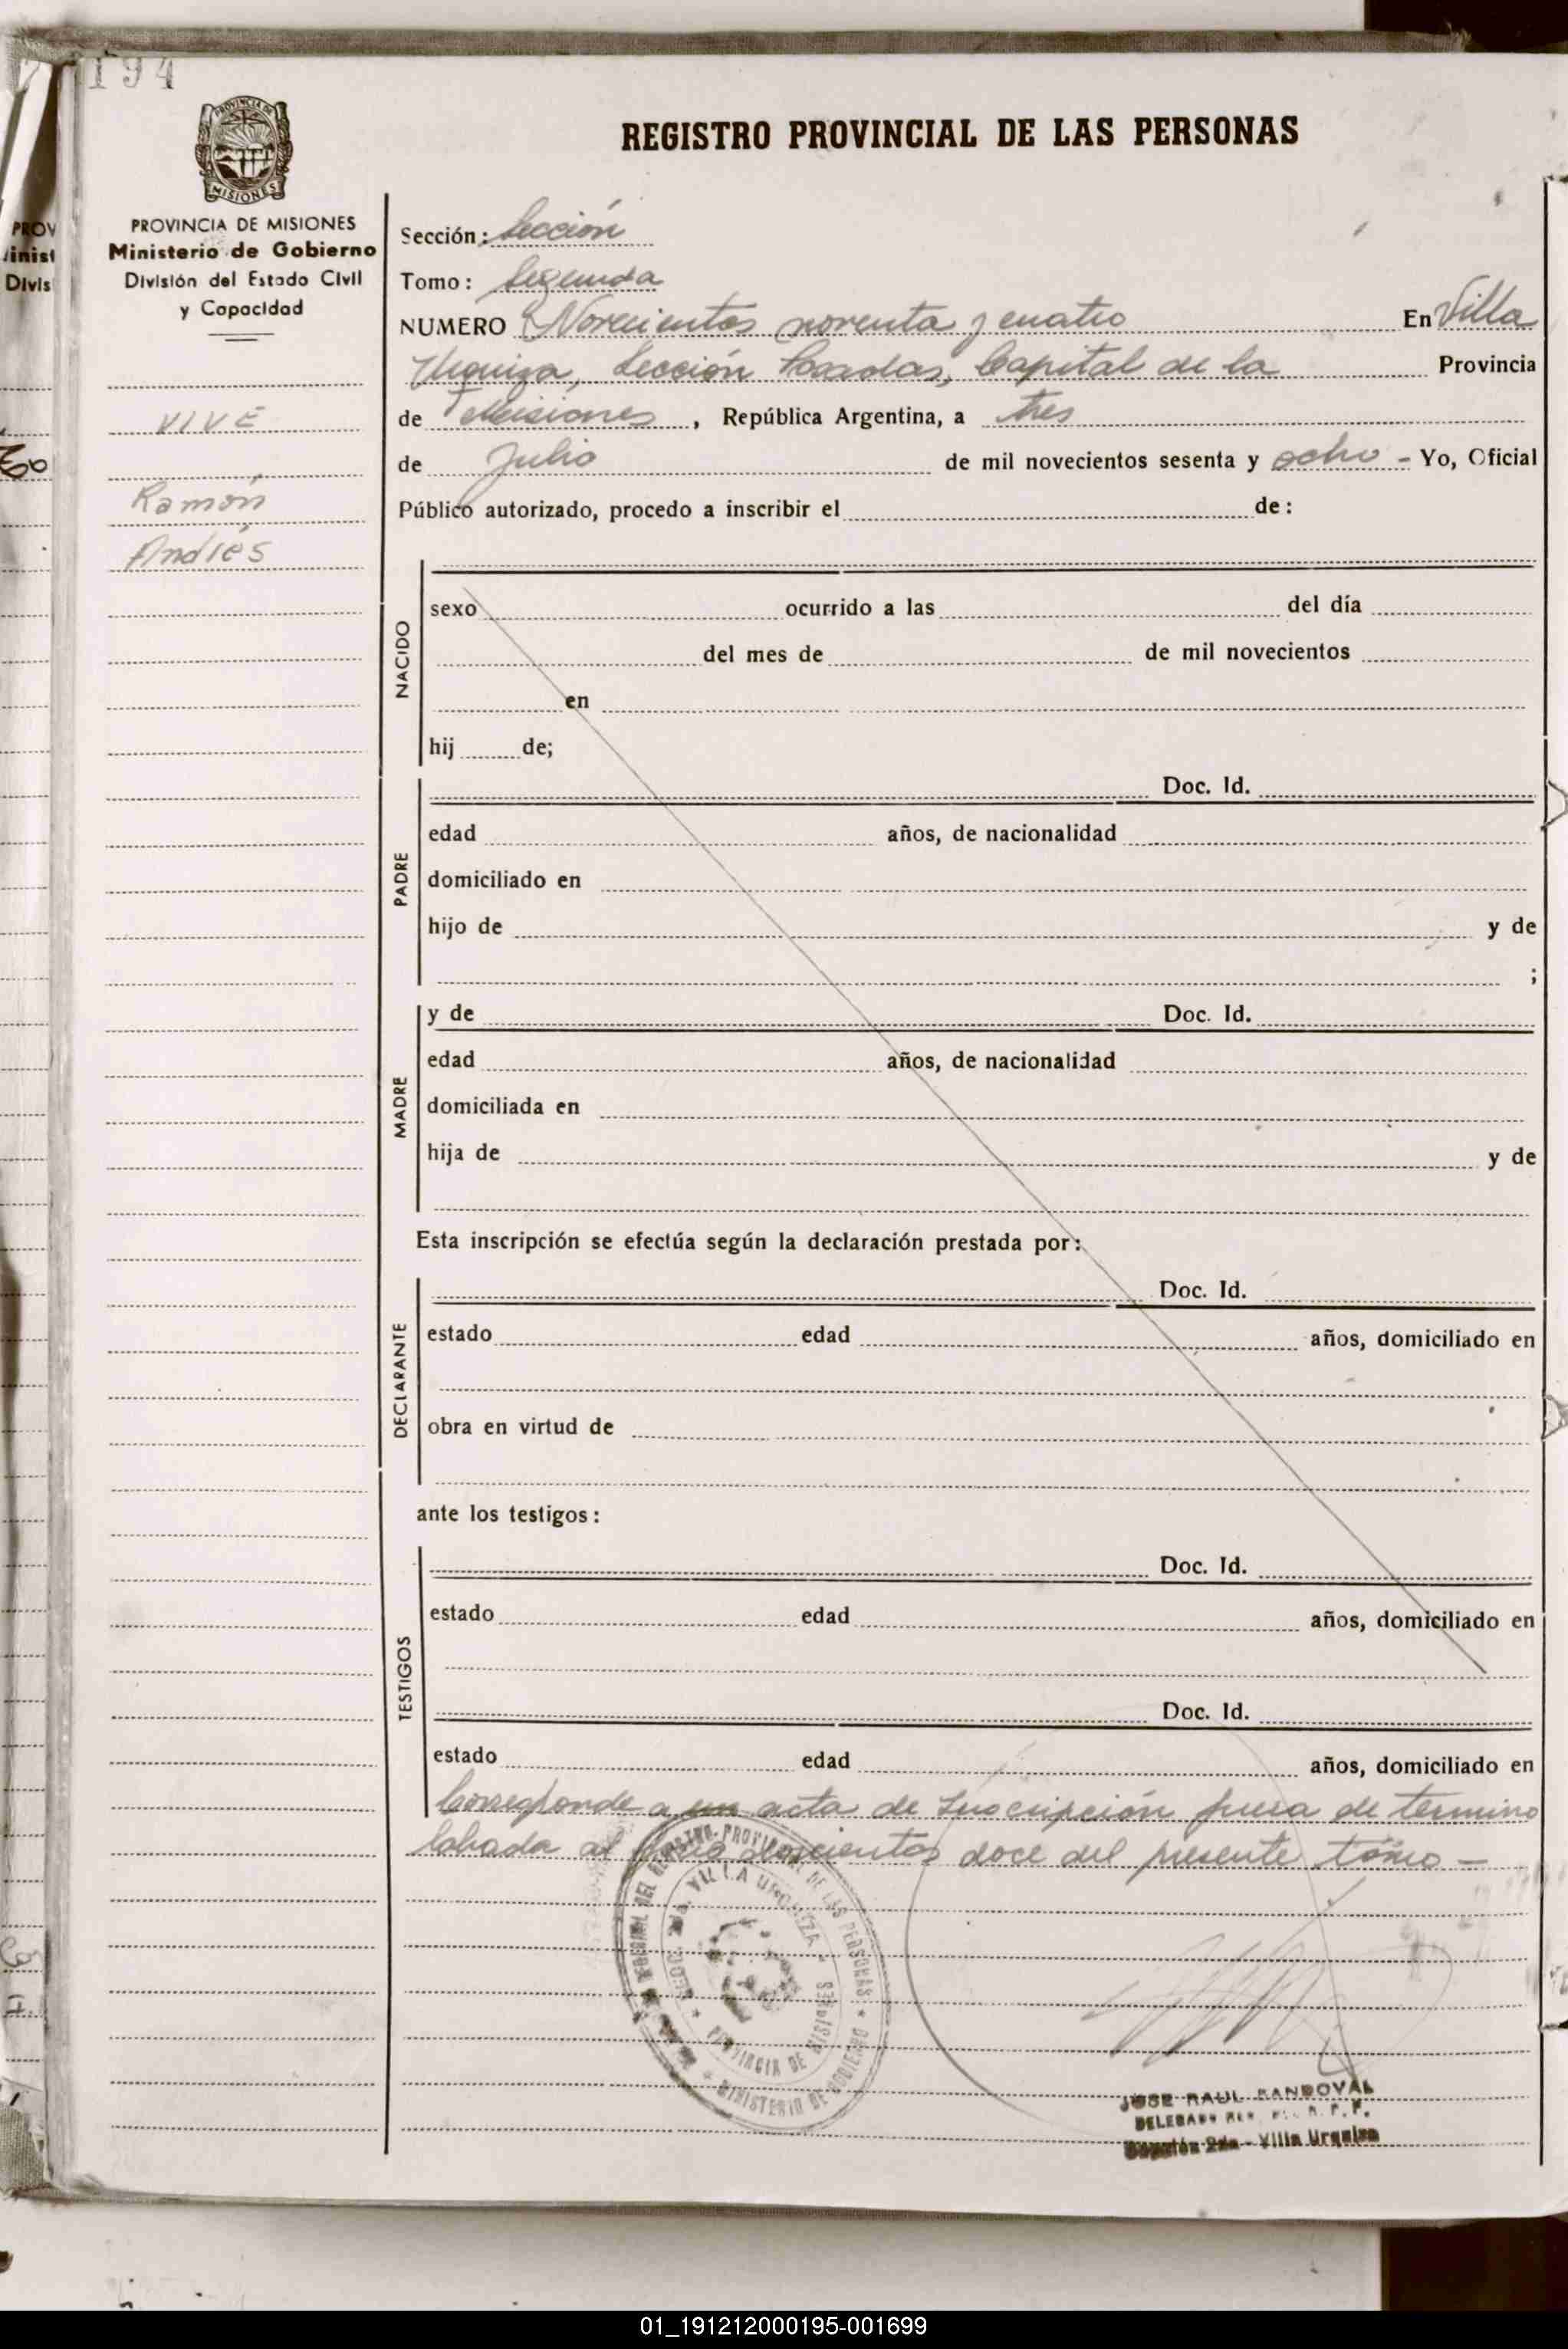 194
PROVINCIA DE
MISIONES
PROVINCIA DE MISIONES
Ministerio de Gobierno
División del Estado Civil
y Capacidad
VIVE
Ramón
Andrés
REGISTRO PROVINCIAL DE LAS PERSONAS
Sección: Sección
Tomo: Segunda
NUMERO Novecientos noventa y cuatro En Villa
Urquiza, Sección Posadas, Capital de la Provincia
de Misiones, República Argentina, a tres
de Julio de mil novecientos sesenta y ocho - Yo, Oficial
Público autorizado, procedo a inscribir el de:
NACIDO
sexo ocurrido a las del día
del mes de de mil novecientos
en
hij de;
PADRE
Doc. Id.
edad años, de nacionalidad
domiciliado en
hijo de y de
;
MADRE
y de Doc. Id.
edad años, de nacionalidad
domiciliada en
hija de y de
Esta inscripción se efectúa según la declaración prestada por:
DECLARANTE
Doc. Id.
estado edad años, domiciliado en
obra en virtud de
ante los testigos:
TESTIGOS
Doc. Id.
estado edad años, domiciliado en
Doc. Id.
estado edad años, domiciliado en
Corresponde a un acta de Inscripción fuera de termino
labada al folio doscientos doce del presente tomo -
REGISTRO PROVINCIAL DE LAS PERSONAS * MINISTERIO DE GOBIERNO *
SECC. 2da. VILLA URQUIZA - PROVINCIA DE MISIONES
JOSE RAUL SANDOVAL
Sección 2da - Villa Urquiza
01_191212000195-001699